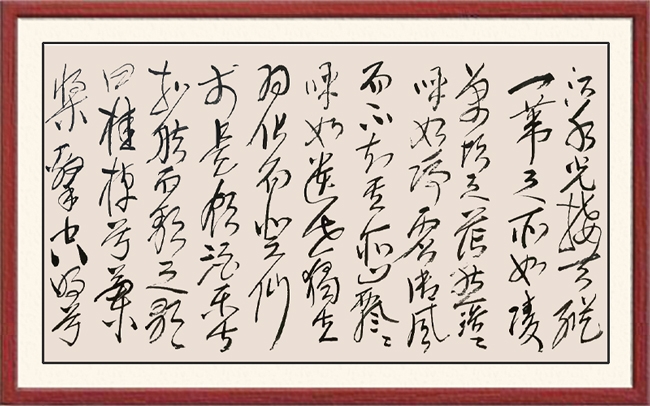 江水光接天縱
一葦之所如凌
萬頃之茫然浩〻
乎如馮虛御風
而不知其所止飄〻
乎如遺世獨立
羽化而登仙
於是飲酒樂甚
扣舷而歌之歌
曰桂棹兮蘭
槳擊空明兮